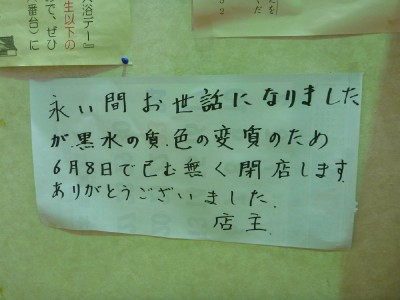 入浴デー』
生以下の
で、ぜひ
番台）に
永い間お世話になりました
が.黒水の質.色の変質のため
6月8日で已む無く閉店します.
ありがとうございました.
店主.